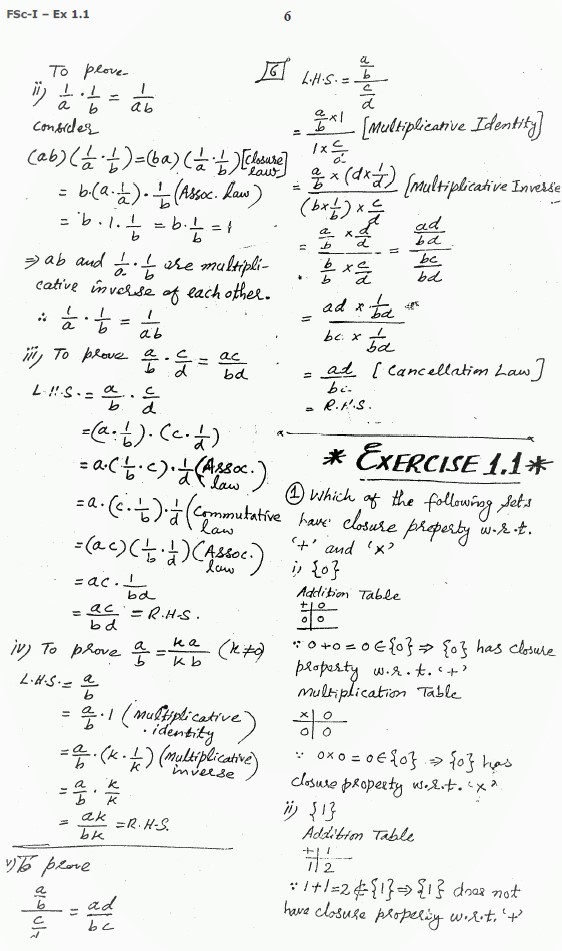 FSc-I – Ex 1.1
6
To prove
ii) 1/a · 1/b = 1/ab
consider
(ab)(1/a · 1/b) = (ba)(1/a · 1/b) [closure law]
= b·(a·1/a)·1/b (Assoc. law)
= b · 1 · 1/b = b · 1/b = 1
⇒ ab and 1/a · 1/b are multipli-
cative inverse of each other.
∴ 1/a · 1/b = 1/ab
iii) To prove a/b · c/d = ac/bd
L.H.S. = a/b · c/d
= (a · 1/b) · (c · 1/d)
= a·(1/b · c)·1/d (Assoc. law)
= a·(c · 1/b)·1/d (Commutative law)
= (ac)(1/b · 1/d) (Assoc. law)
= ac · 1/bd
= ac/bd = R.H.S.
iv) To prove a/b = ka/kb (k≠0)
L.H.S. = a/b
= a/b · 1 (multiplicative identity)
= a/b · (k · 1/k) (multiplicative inverse)
= a/b · k/k
= ak/bk = R.H.S.
v) To prove
(a/b)/(c/d) = ad/bc
6 L.H.S. = (a/b)/(c/d)
= (a/b × 1)/(1 × c/d) [Multiplicative Identity]
= (a/b × (d × 1/d))/((b × 1/b) × c/d) [Multiplicative Inverse
= (a/b × d/d)/(b/b × c/d) = (ad/bd)/(bc/bd)
= (ad × 1/bd)/(bc × 1/bd)
= ad/bc [Cancellation Law]
= R.H.S.
* EXERCISE 1.1 *
1 Which of the following sets
have closure property w.r.t.
‘+’ and ‘×’
i) {0}
Addition Table
+ | 0
0 | 0
∵ 0+0 = 0 ∈ {0} ⇒ {0} has closure
property w.r.t. ‘+’
Multiplication Table
× | 0
0 | 0
∵ 0×0 = 0 ∈ {0} ⇒ {0} has
closure property w.r.t. ‘×’
ii) {1}
Addition Table
+ | 1
1 | 2
∵ 1+1=2 ∉ {1} ⇒ {1} does not
have closure property w.r.t. ‘+’